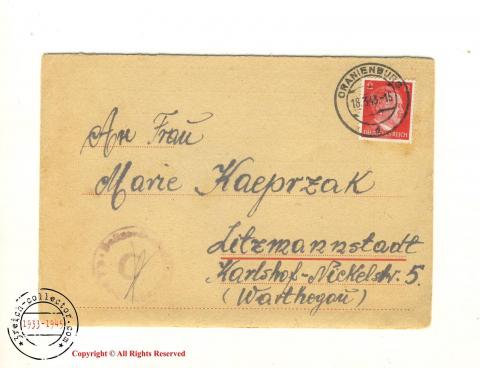 ORANIENBURG
18.3.43.-15
DEUTSCHES REICH
An Frau
Marie Kacprzak
Litzmannstadt
Karlshof-Nickelstr. 5.
(Warthegau)
3reich-collector.com
1933-1945
Copyright © All Rights Reserved